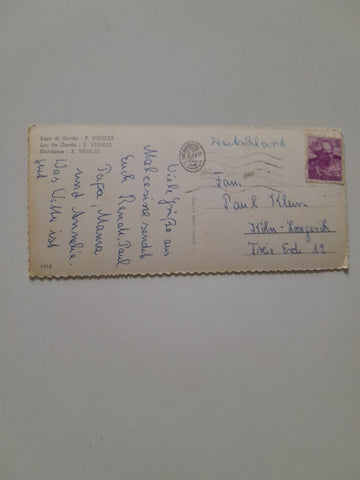 Lago di Garda - S. VIGILIO
Lac de Garda - S. VIGILIO
Gardasee - S. VIGILIO
Viele Grüße aus
Malcesine sendet
Euch Renate, Paul
Papa, Mama
und
Das Wetter ist
gut
1216
Deutschland
Fam
Paul Klein
Köln-Longerich
Freie Erde 19